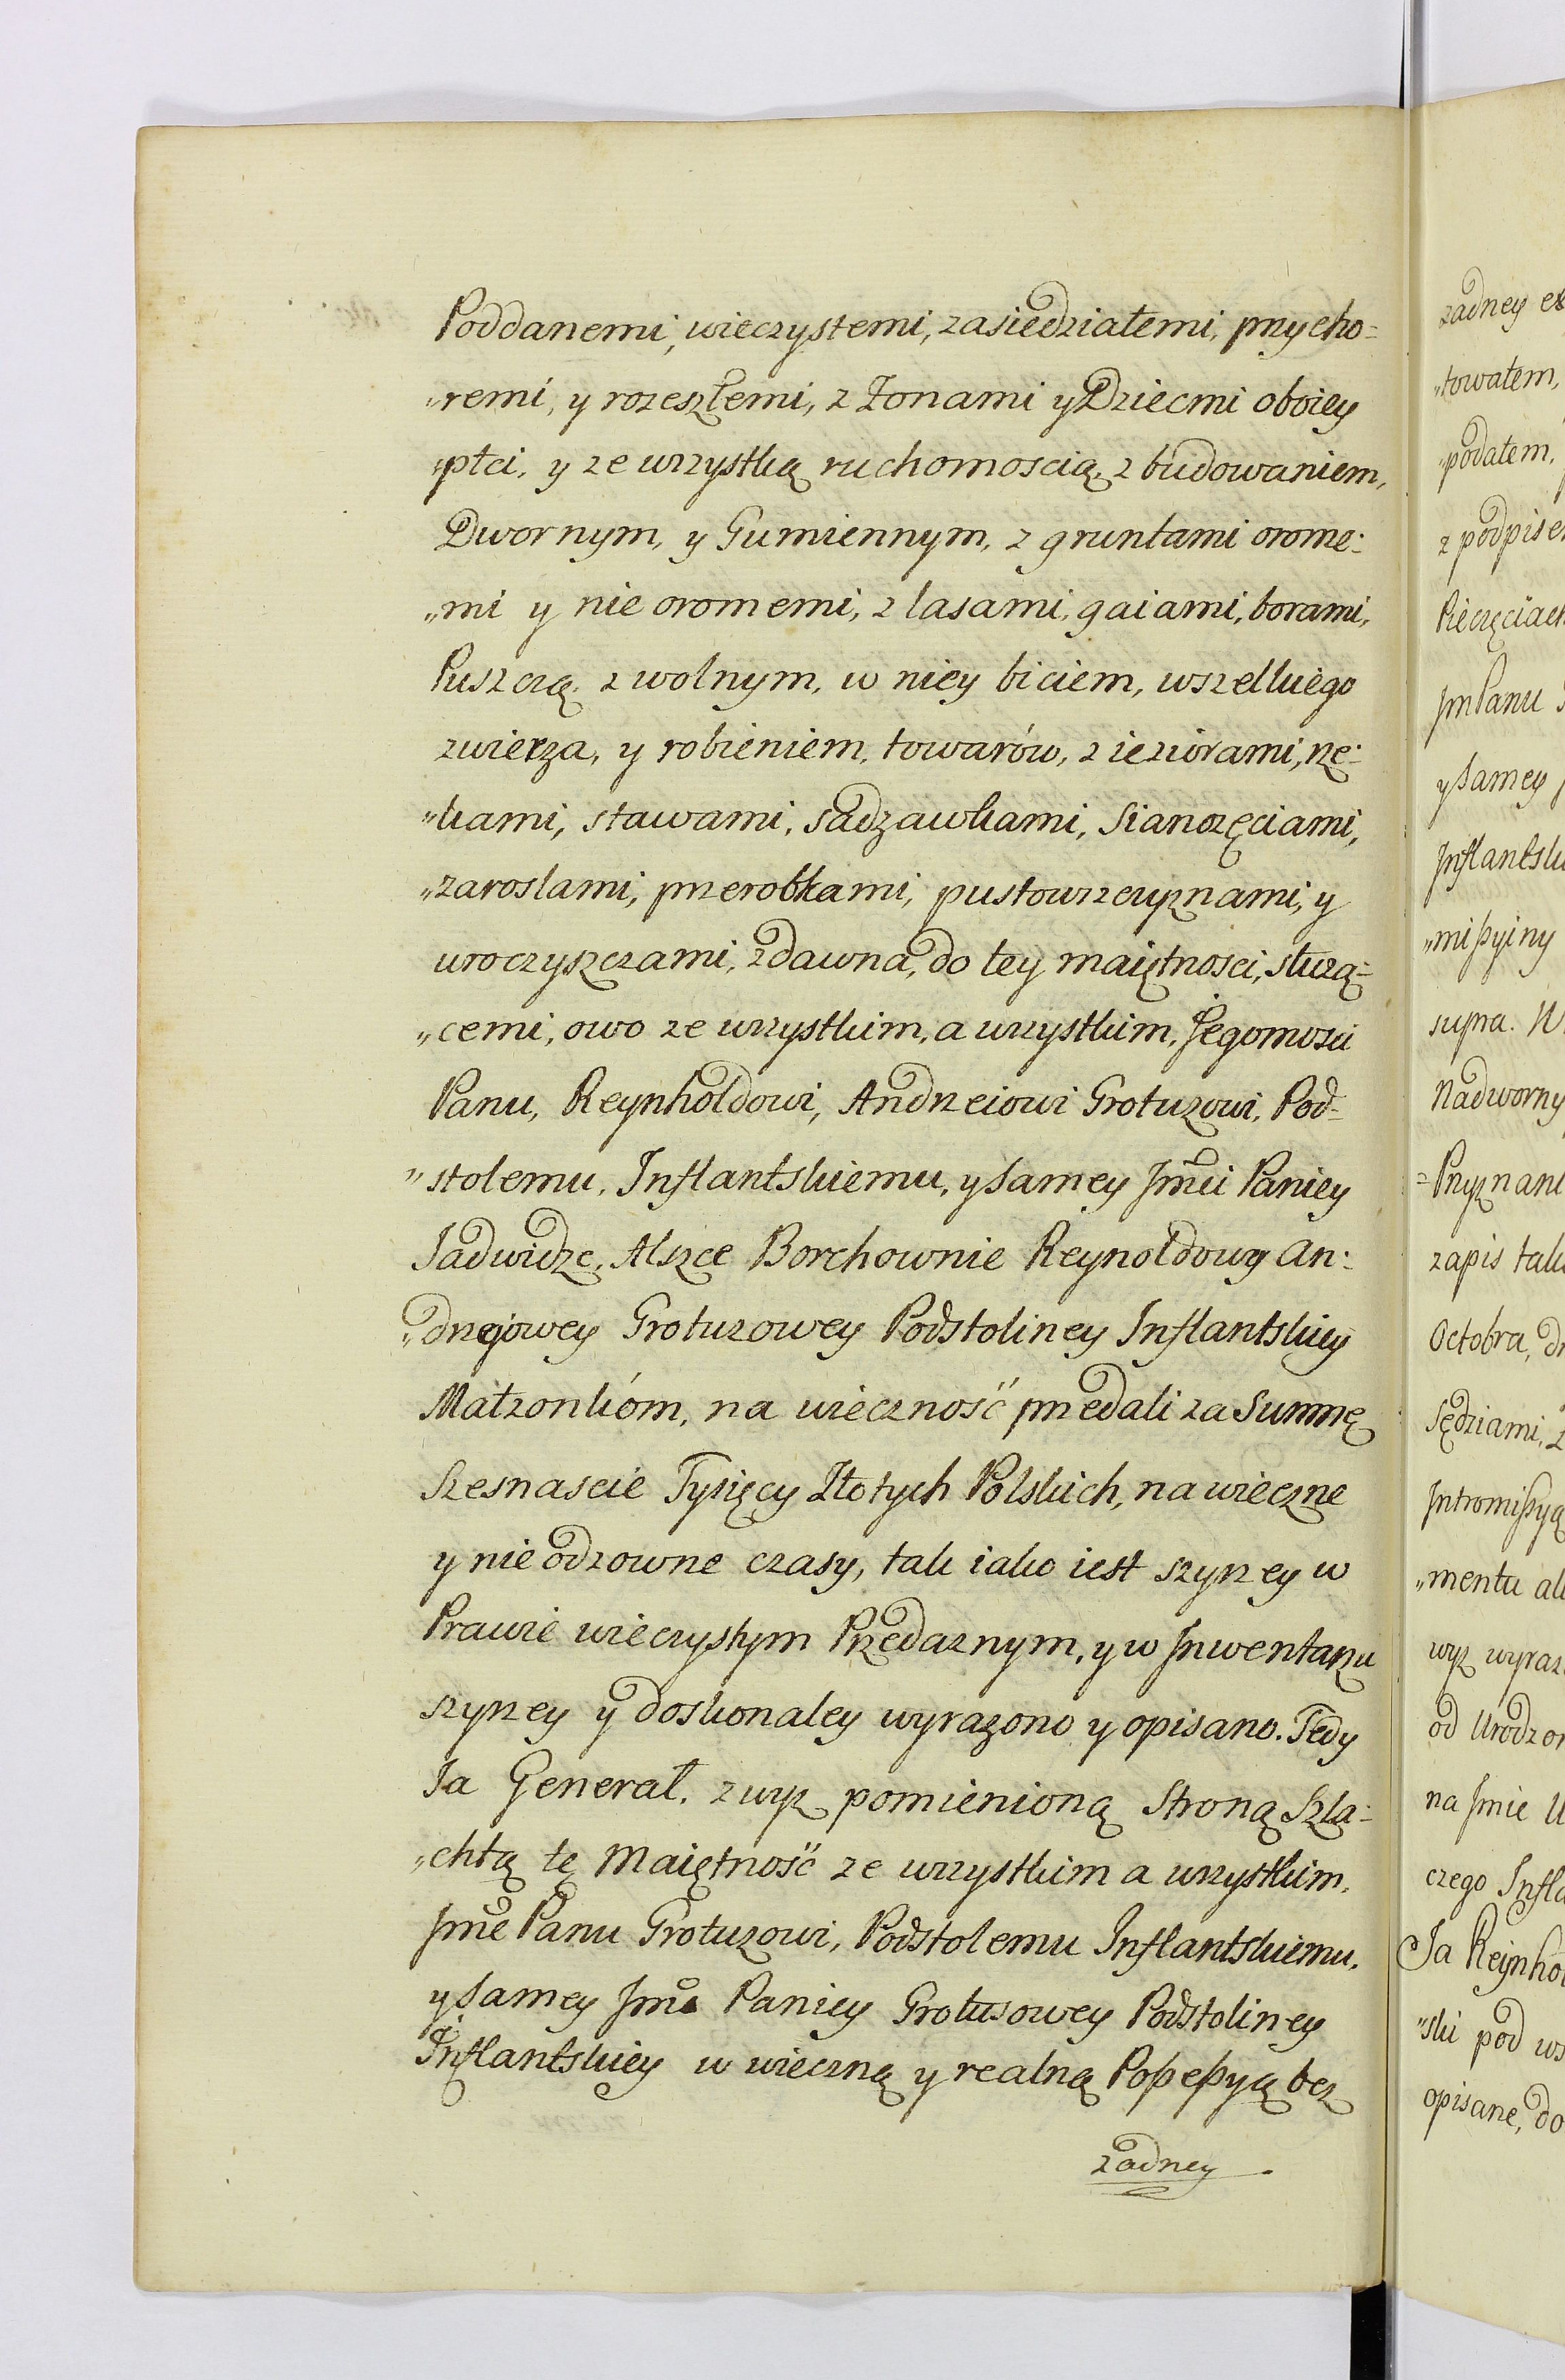 Poddanemi, wieczystemi, zasiedziałemi, przycho=
„remi, y rozeszłemi, z Żonami y Dziecmi oboiey
„płci, y ze wszystką ruchomoscią, z budowaniem,
Dwornym, y Gumiennym, z gruntami orome:
„mi y nie oromemi, z lasami, gaiami, borami,
Puszczą, z wolnym, w niey biciem, wszelkiego
zwierza, y robieniem, towarów, z ieziorami, rze:
„kami, stawami, sadzawkami, Sianorzęciami,
„zaroslami, przerobkami, pustowszczyznami, y
uroczyszczami, zdawna, do tey maiętnosci, służą=
„cemi, owo ze wszystkim, a wszystkim, Jegomosci
Panu, Reynholdowi, Andrzeiowi Grotuzowi, Pod=
„stolemu, Inflantskiemu, y samey Jmci Paniey
Jadwidze, Alszce Borchownie Reynoldowy An:
„drzejowey Grotuzowey Podstoliney Inflantskiey
Małzonkóm, na wieczność przedali za Summę
Szesnascie Tysięcy Złotych Polskich, na wieczne
y nieodzowne czasy, tak iako iest szyrzey w
Prawie wieczystym Przedaznym, y w Jnwentarzu
szyrzey y doskonaley wyrazono y opisano. Tedy
Ja Generał, zwyz pomienioną Stroną Szla=
„chtą tę Maiętność ze wszystkim a wszystkim,
Jmc Panu Grotuzowi, Podstolemu Inflantskiemu,
y samey Jmc Paniey Grotusowey Podstoliney
Inflantskiey w wieczną y realną Possessyą bez
zadney
zadney ex
„towałem,
„podałem,
z podpise
Pieczęciach
Jm Panu
y samey
Jnflantsk
„missyiny
supra. W
Nadworny
=Przyznani
zapis tak
Octobra,
Sędziami,
Jntromissyą
„mentu ak
wyz wyraz
od Urodzon
na Jmie U
czego Infla
Ja Reynhol
„ski pod ws
opisane, do